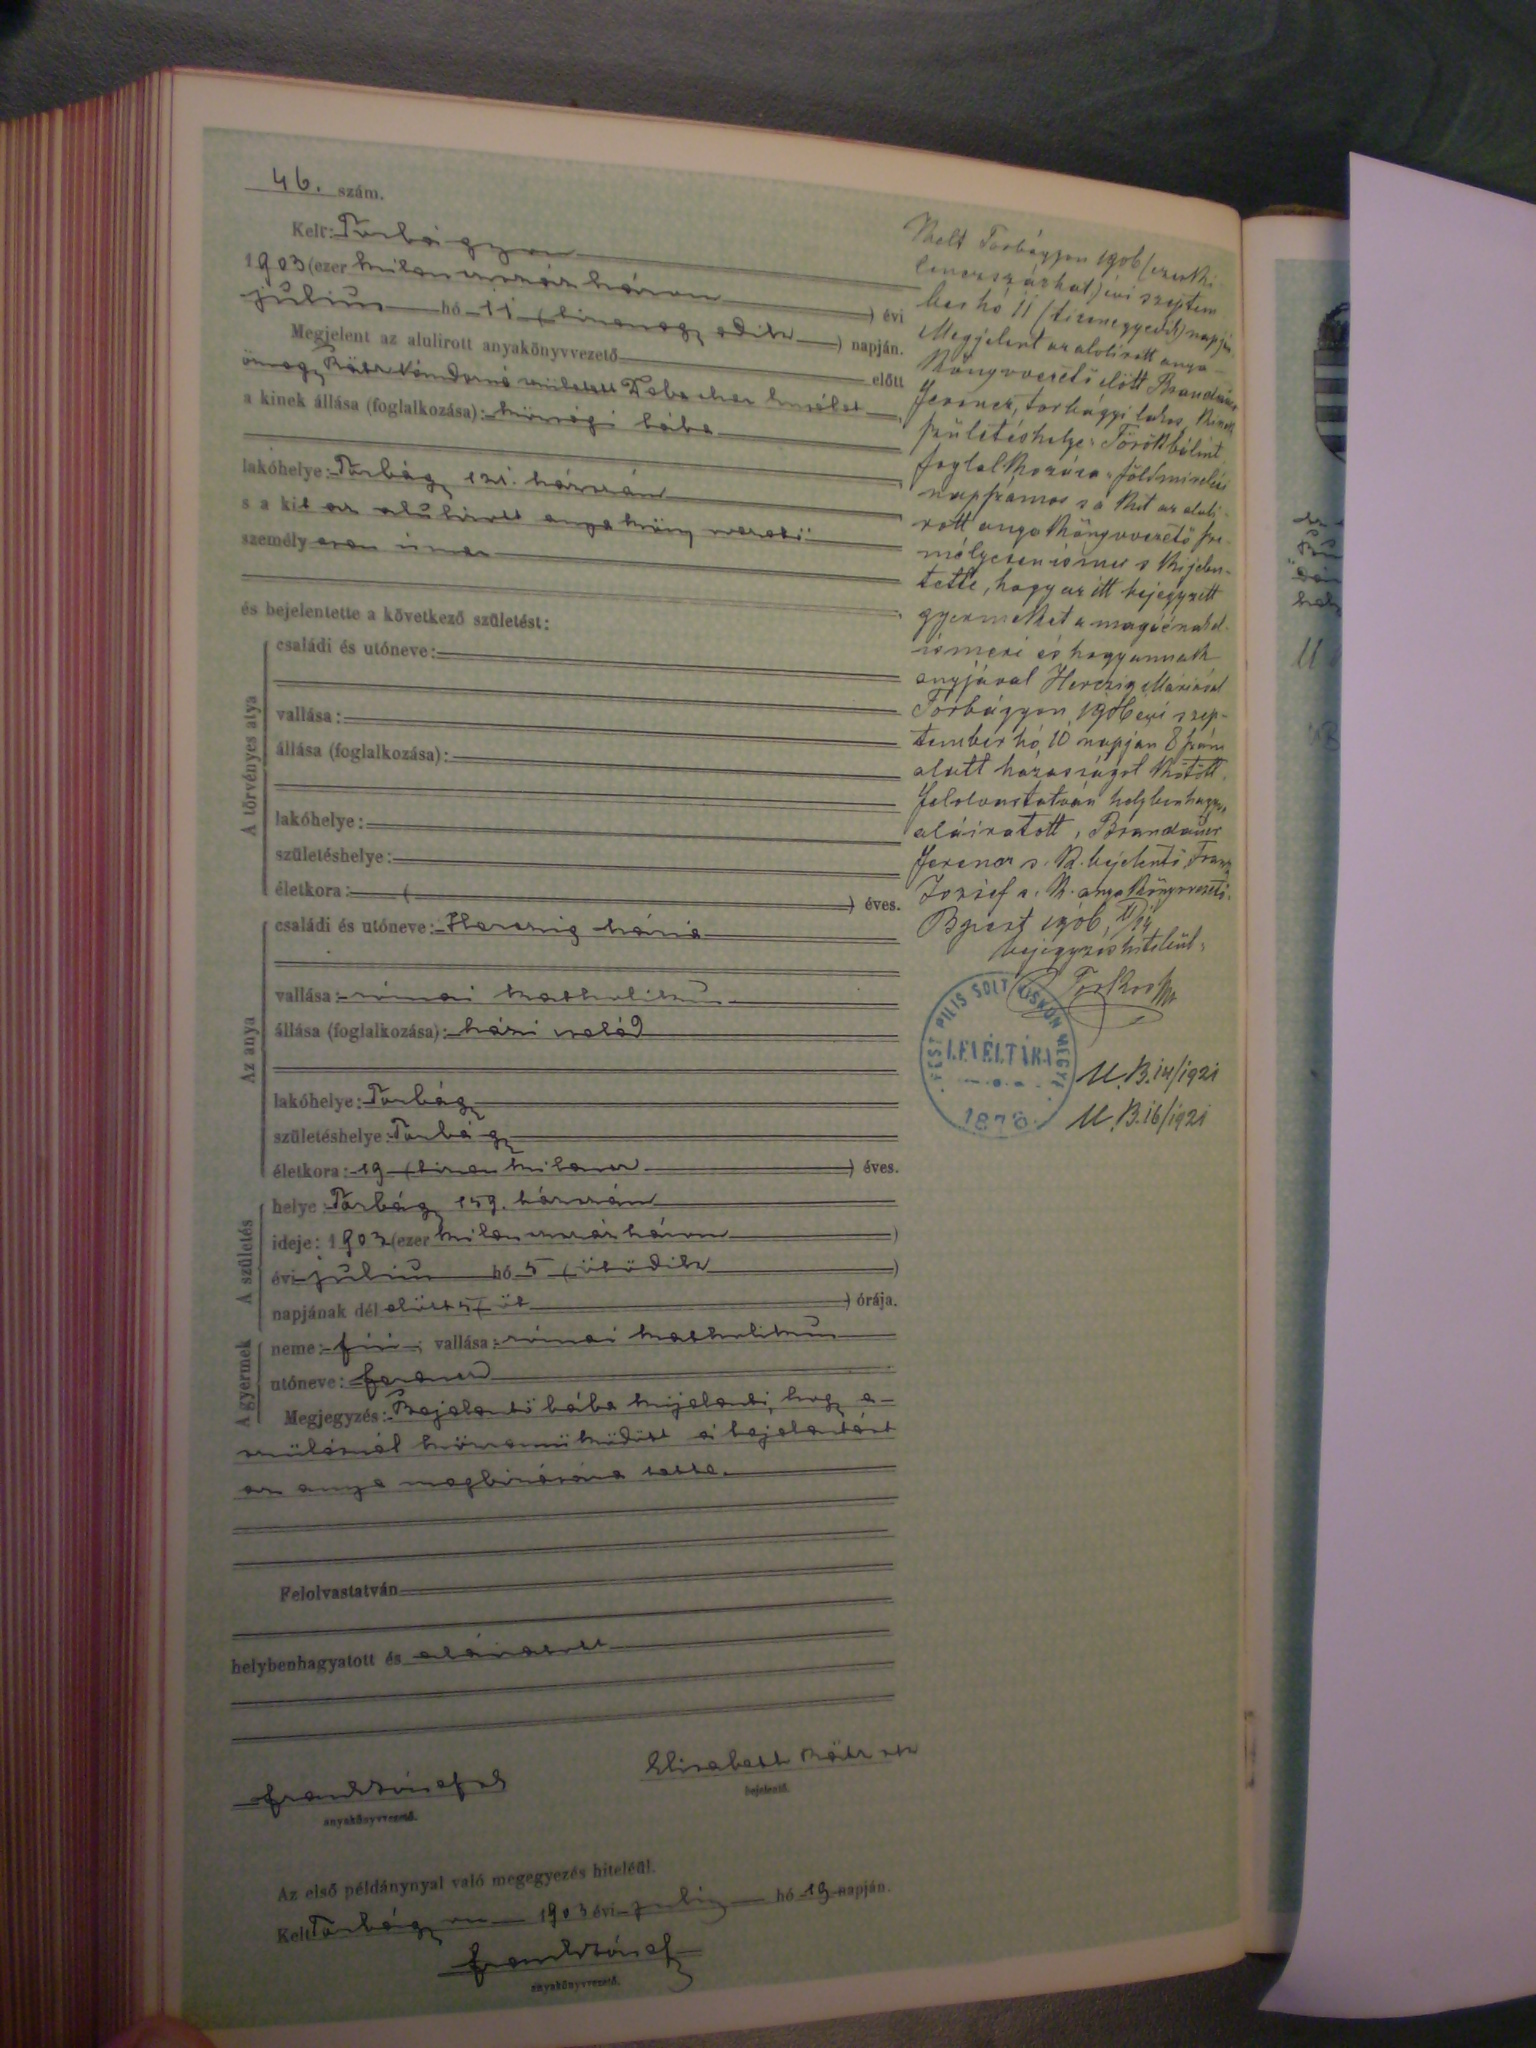 46. szám.
Kelt: Torbágyon
1903 (ezer kilenczszáz három
) évi
julius hó 11 (tizenegyedik) napján.
Megjelent az alulirott anyakönyvvezető előtt
özvegy Rátz Nándorné született Erzsébet
a kinek állása (foglalkozása): községi bába
lakóhelye: Torbágy 121. házszám
s a kit az alulirott anyakönyvvezető
személyesen ismer
és bejelentette a következő születést:
A törvényes atya
családi és utóneve:
vallása:
állása (foglalkozása):
lakóhelye:
születéshelye:
életkora: ( ) éves.
Az anya
családi és utóneve: Herczig Mária
vallása: római katholikus
állása (foglalkozása): házi cseléd
lakóhelye: Torbágy
születéshelye: Torbágy
életkora: 19 (tizenkilencz ) éves.
A születés
helye: Torbágy 159. házszám
ideje: 1903 (ezer kilenczszáz három )
évi julius hó 5 (ötödik )
napjának dél előtt 5 (öt ) órája.
A gyermek
neme: fiú; vallása: római katholikus
utóneve: Ferencz
Megjegyzés: Bejelentő bába kijelenti, hogy a
szülésnél közreműködött s a bejelentést
az anya megbizására tette.
Felolvastatván
helybenhagyatott és aláiratott
Frank József sk
anyakönyvvezető.
Elisabeth Rátz
bejelentő.
Az első példánynyal való megegyezés hiteléül.
Kelt Torbágyon 1903 évi julius hó 19 napján.
Frank József
anyakönyvvezető.
Kelt Torbágyon 1906 (ezerki-
lenczszázhat) évi szeptem
ber hó 11 (tizenegyedik) napján
Megjelent az alulirott anya-
könyvvezető előtt Brandauer
Ferencz, torbágyi lakos, kinek
születéshelye: Törökbálint,
foglalkozása: földmivelési
napszámos s a kit az aluli-
rott anyakönyvvezető sze-
mélyesen ismer s kijelen-
tette, hogy az itt bejegyzett
gyermeket a magáénak el-
ismeri és hogy annak
anyjával Herczig Máriával
Torbágyon 1906 évi szep-
tember hó 10 napján 8 szám
alatt házasságot kötött.
Felolvastatván helybenhagy.
aláiratott, Brandauer
Ferencz s. k. bejelentő, Frank
József s. k. anyakönyvvezető.
Bpest 1906,
bejegyzés hiteléül:
PEST PILIS SOLT KISKUN MEGYE
LEVÉLTÁRA
1876.
U. B. 14/1921
U. B. 16/1921